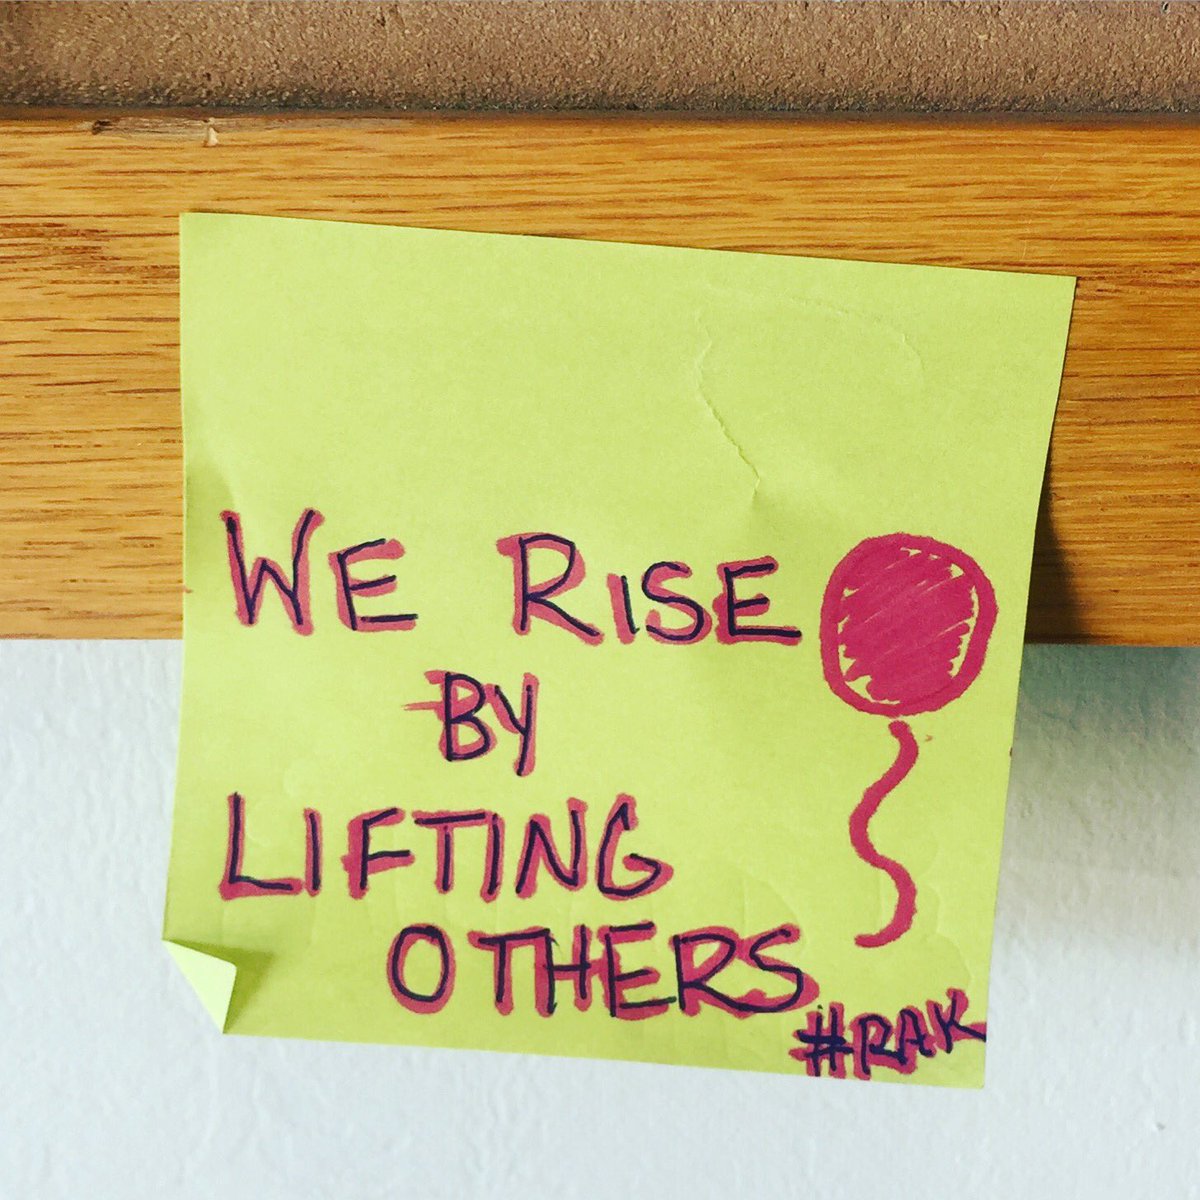 WE RISE
BY
LIFTING
OTHERS
#RAK